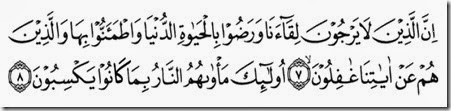 اِنَّ الَّذِيْنَ لَا يَرْجُوْنَ لِقَاۤءَنَا وَرَضُوْا بِالْحَيٰوةِ الدُّنْيَا وَاطْمَـَٔنُّوْا بِهَا وَالَّذِيْنَ
هُمْ عَنْ اٰيٰتِنَا غٰفِلُوْنَ ۙ ٧ اُولٰۤىِٕكَ مَأْوٰىهُمُ النَّارُ بِمَا كَانُوْا يَكْسِبُوْنَ ٨